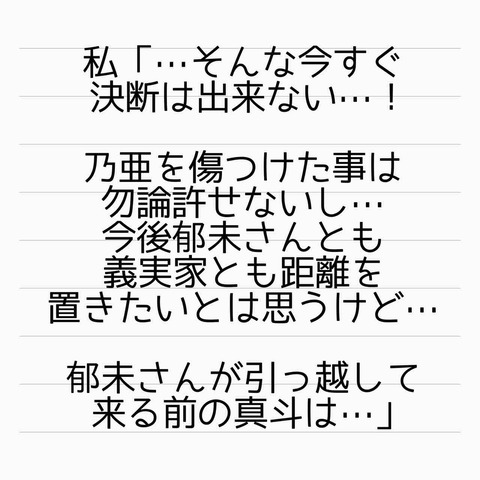 私「…そんな今すぐ
決断は出来ない…！
乃亜を傷つけた事は
勿論許せないし…
今後郁未さんとも
義実家とも距離を
置きたいとは思うけど…
郁未さんが引っ越して
来る前の真斗は…」